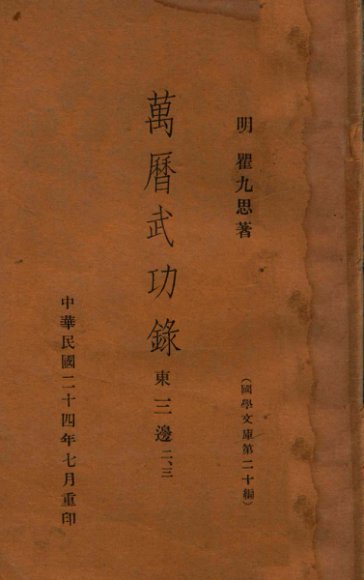 明 瞿九思著
(國學文庫第二十編)
萬曆武功錄 東三邊二、三
中華民國二十四年七月重印